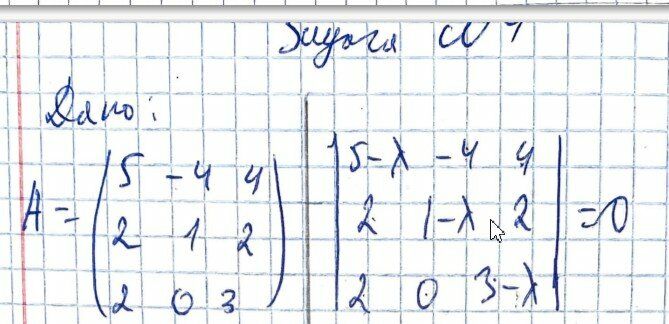 Задача №1
Дано:
A = ( 5 -4 4
2 1 2
2 0 3 )
| 5-λ -4 4
2 1-λ 2
2 0 3-λ | = 0